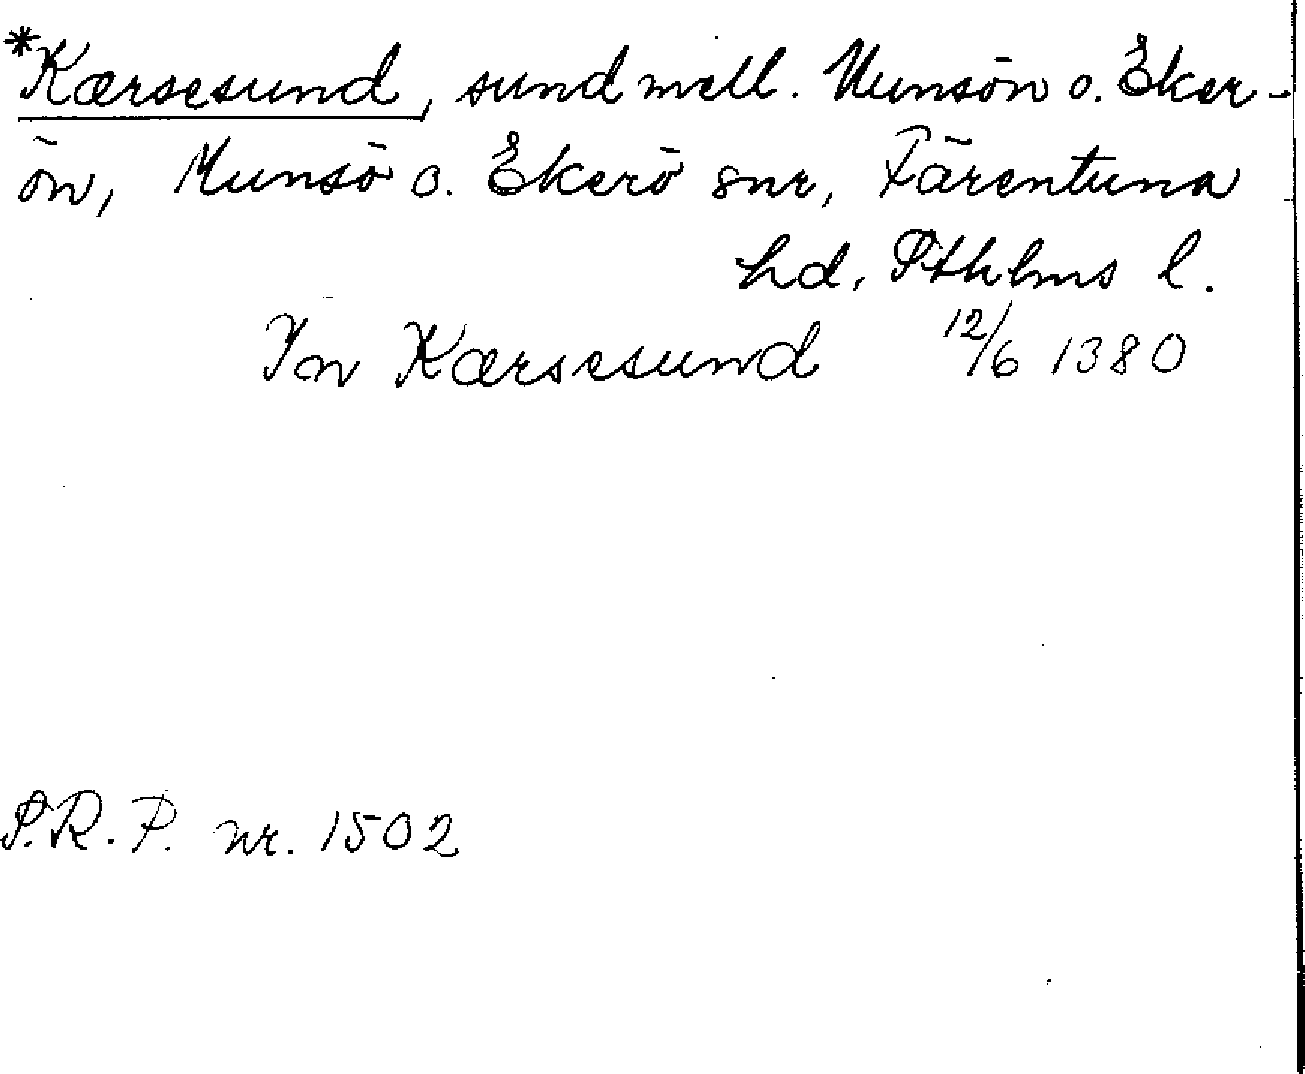 *Kærsesund, sund mell. Munsön o. Eker-
ön, Munsö o. Ekerö snr, Färentuna
hd, Sthlms l.
In Kærsesund 12/6 1380
S.R.P. nr. 1502